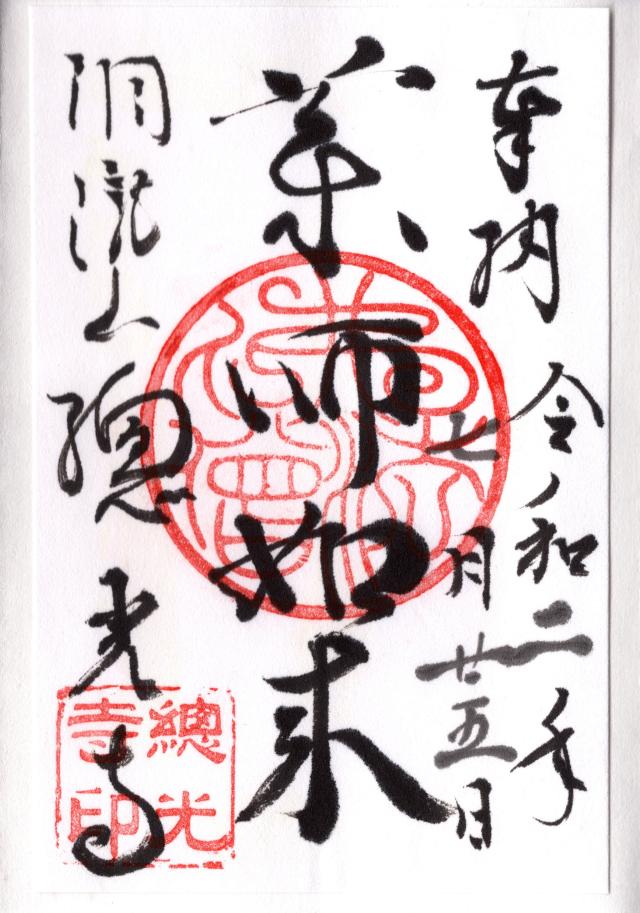 奉納 令和二年
七月廿五日
薬師如来
洞瀧山 總光寺
總光
寺印